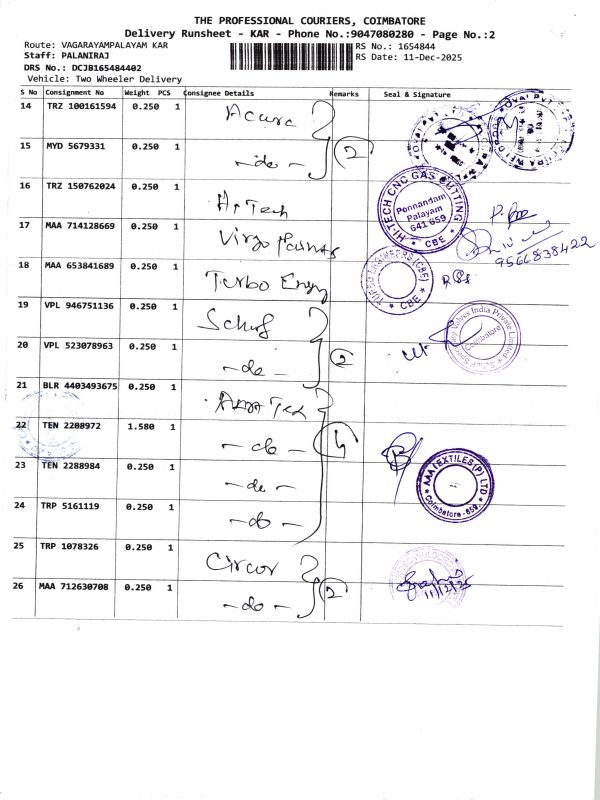 THE PROFESSIONAL COURIERS, COIMBATORE
Delivery Runsheet - KAR - Phone No.:9047080280 - Page No.:2
Route: VAGARAYAMPALAYAM KAR RS No.: 1654844
Staff: PALANIRAJ RS Date: 11-Dec-2025
DRS No.: DCJB165484402
Vehicle: Two Wheeler Delivery
S No Consignment No Weight PCS Consignee Details Remarks Seal & Signature
14 TRZ 100161594 0.250 1 Acura
15 MYD 5679331 0.250 1 - do - 2
16 TRZ 150762024 0.250 1 Hi Tech
HI-TECH CNC GAS CUTTING
Ponnandam
Palayam
641 659
CBE
17 MAA 714128669 0.250 1 Virgo
9566838422
18 MAA 653841689 0.250 1 Turbo Engg
TURBO ENGINEERS (CBE)
CBE
19 VPL 946751136 0.250 1
Valves India Private Limited
Coimbatore
20 VPL 523078963 0.250 1 - do - 2
21 BLR 4403493675 0.250 1
22 TEN 2288972 1.580 1 - do - 4
23 TEN 2288984 0.250 1 - do -
AAA TEXTILES (P) LTD
Coimbatore-659.
24 TRP 5161119 0.250 1 - do -
25 TRP 1078326 0.250 1 Circor
26 MAA 712630708 0.250 1 - do - 2
11/12/25